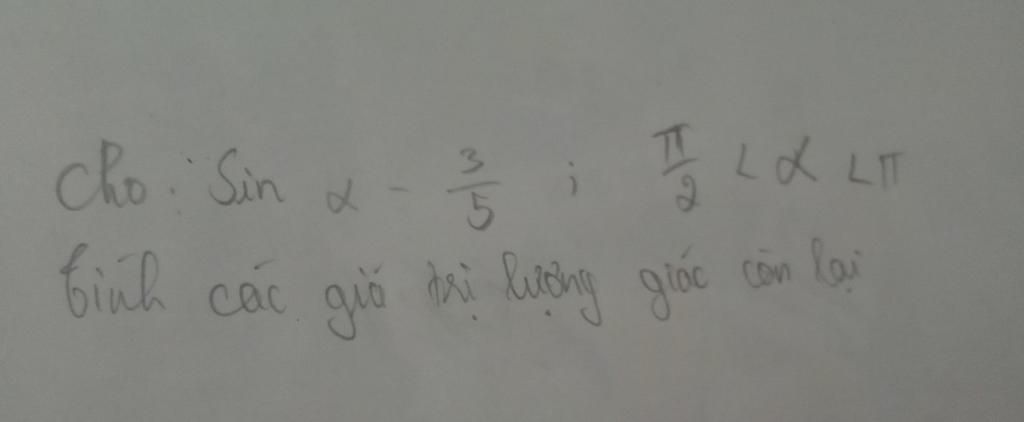 Cho: Sin α - 3/5 ; π/2 < α < π
tính các giá trị lượng giác còn lại